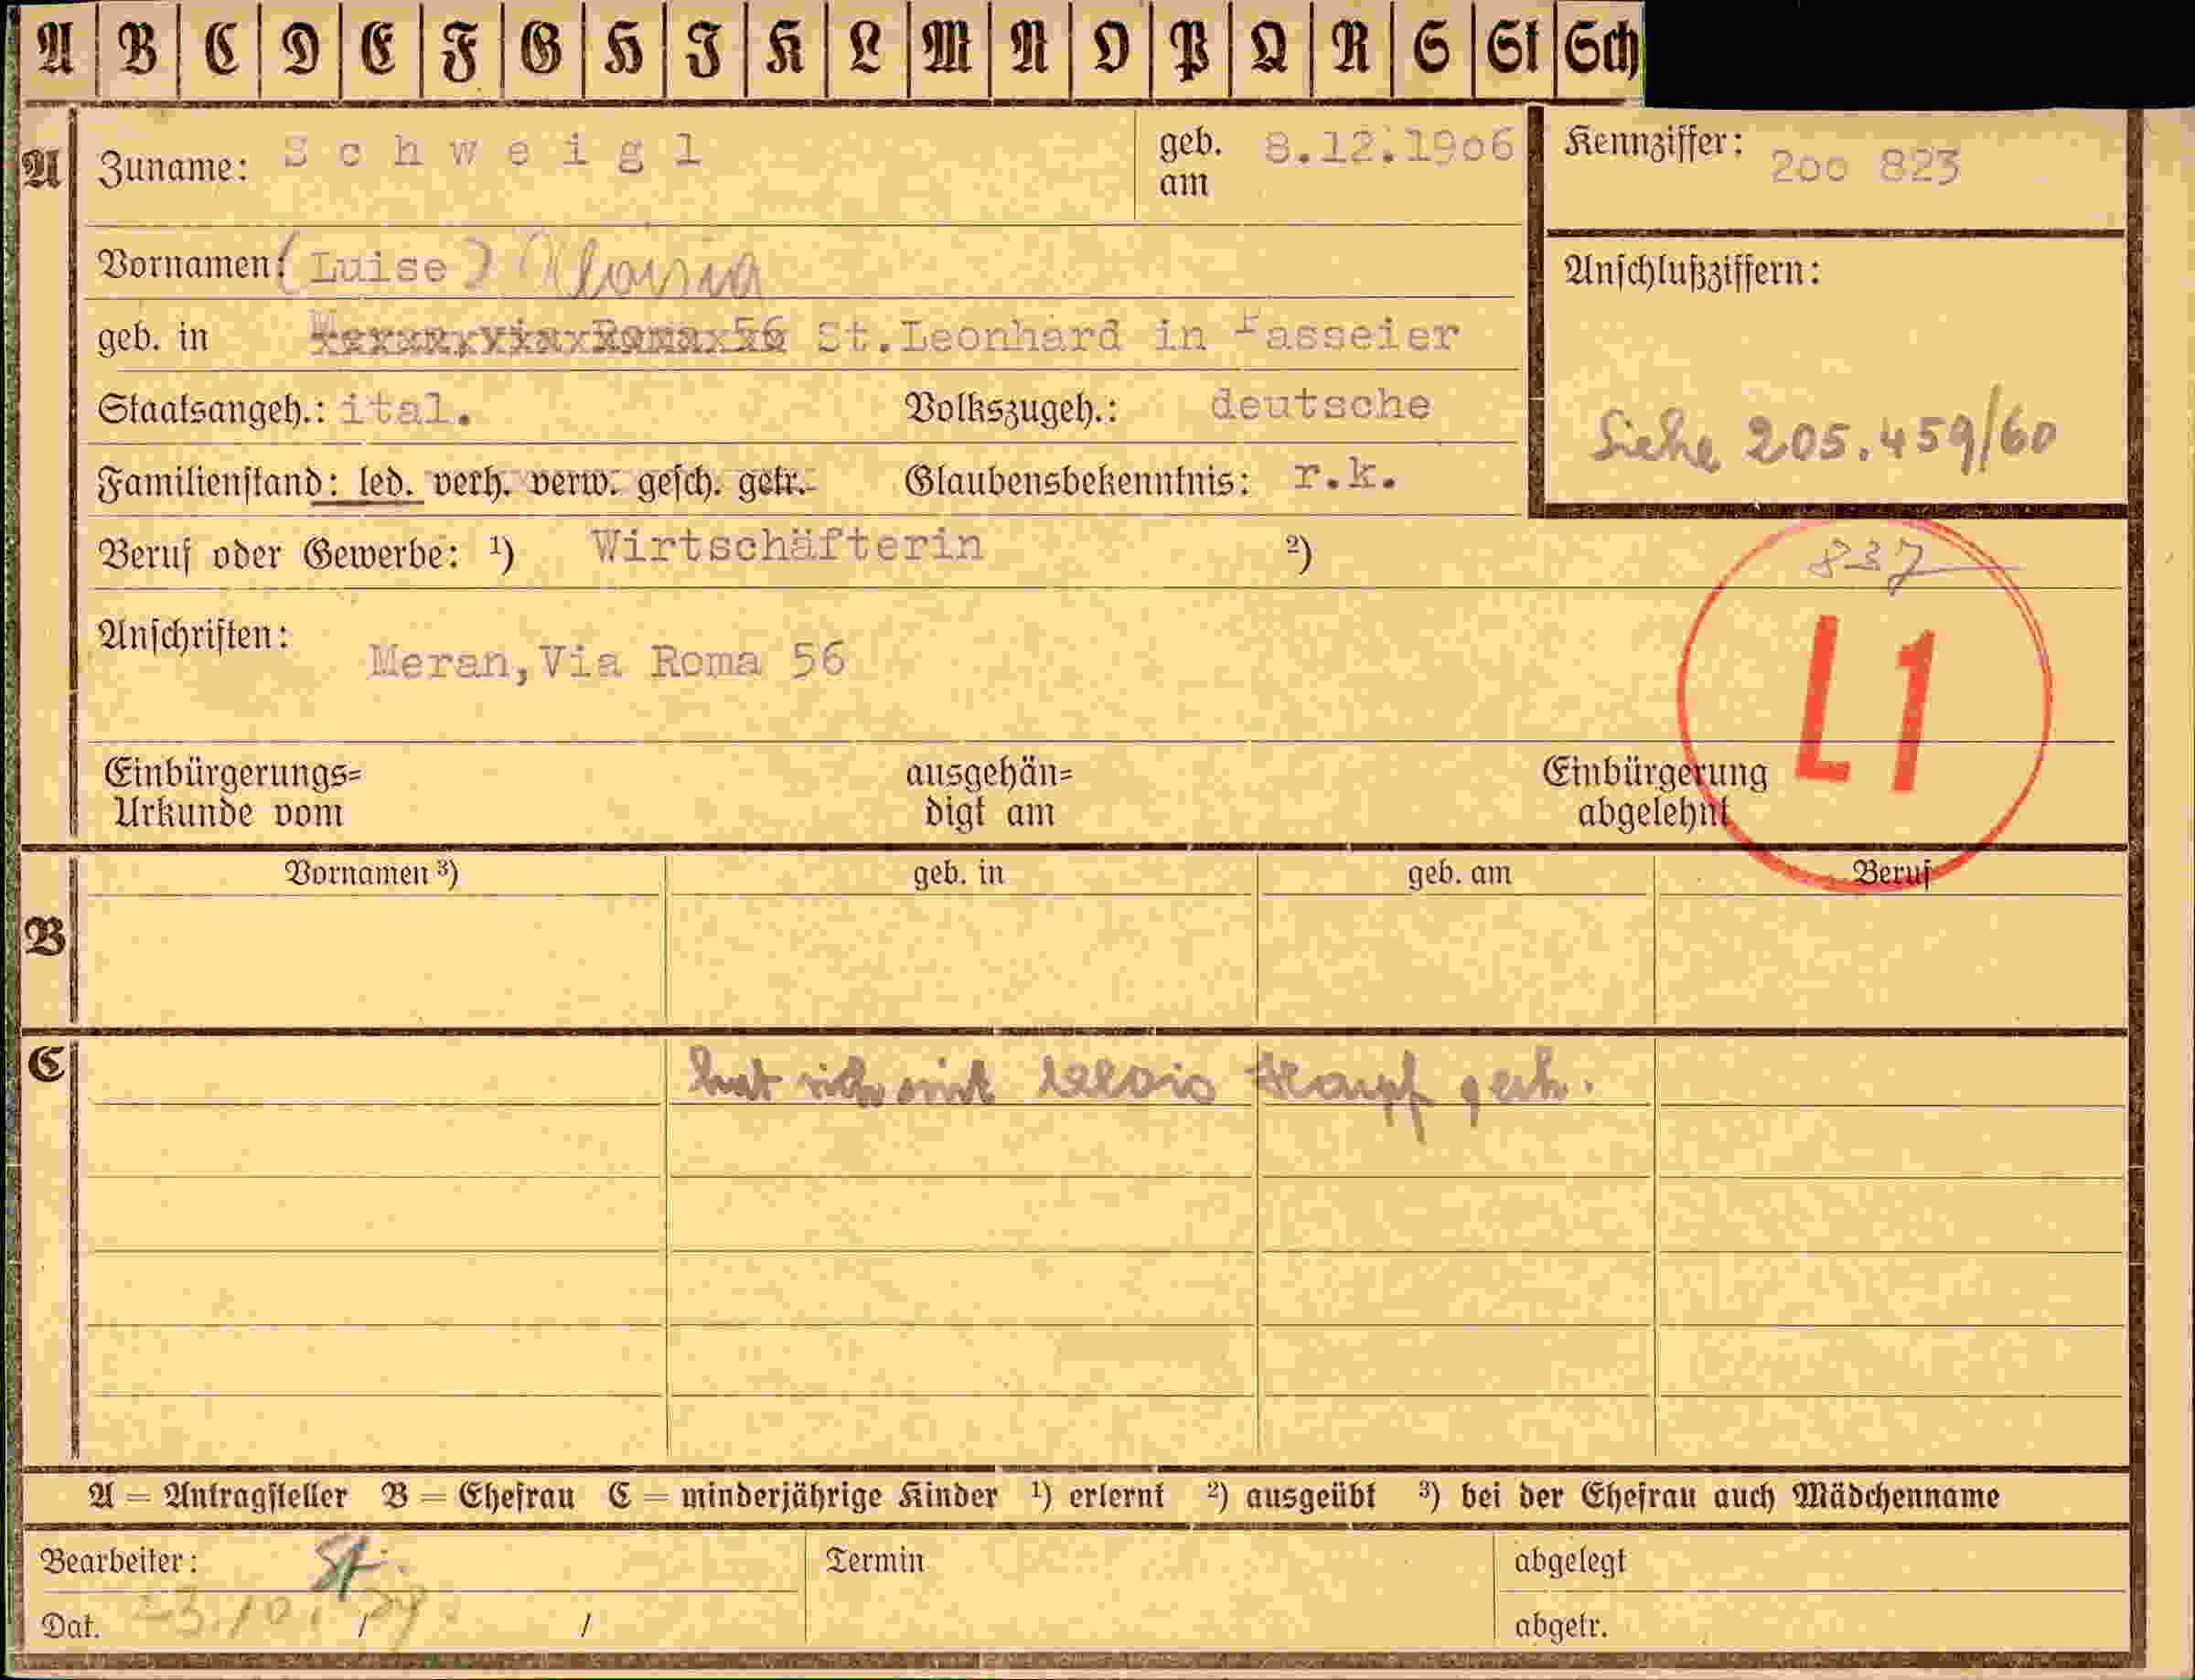 A B C D E F G H J K L M N O P Q R S St Sch
A Zuname: Schweigl geb. am 8.12.1906 Kennziffer: 200 823
Vornamen: (Luise) Maria
Anschlußziffern:
geb. in Meran, Via Roma 56 St.Leonhard in Passeier
Staatsangeh.: ital. Volkszugeh.: deutsche
Siehe 205.459/60
Familienstand: led. verh. verw. gesch. getr. Glaubensbekenntnis: r.k.
Beruf oder Gewerbe: ¹) Wirtschäfterin ²)
837
Anschriften: Meran, Via Roma 56
L1
Einbürgerungs= ausgehän= Einbürgerung
Urkunde vom digt am abgelehnt
Vornamen ³) geb. in geb. am Beruf
B
C hat sich mit Alois geh.
A = Antragsteller B = Ehefrau C = minderjährige Kinder ¹) erlernt ²) ausgeübt ³) bei der Ehefrau auch Mädchenname
Bearbeiter: St. Termin abgelegt
Dat. 23.10. 39. / / abgetr.